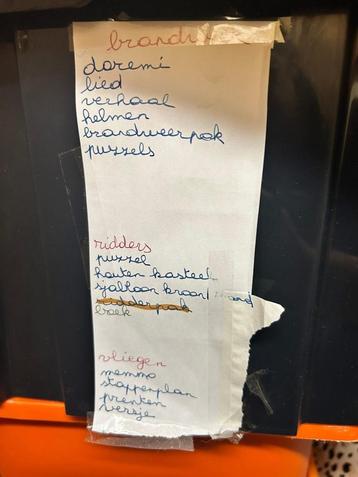 doremi
lied
verhaal
helmen
brandweerpak
puzzels
ridders
puzzel
houten kasteel
sjabloon kroon
ridderpak
boek
vliegen
memmo
stappenplan
prenten
versje